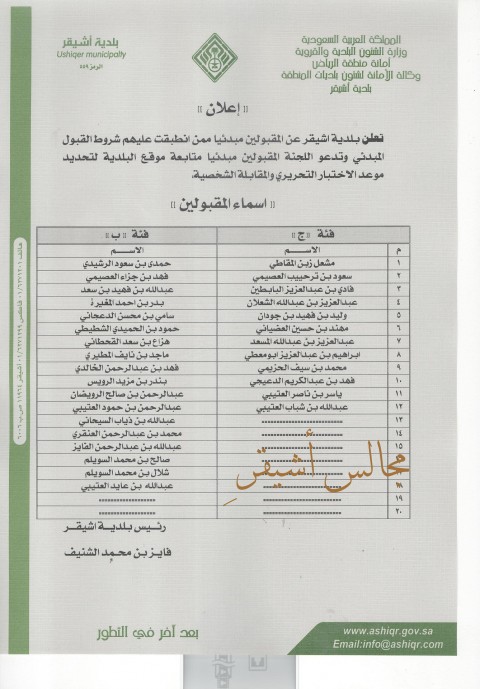 المملكة العربية السعودية
وزارة الشئون البلدية والقروية
أمانة منطقة الرياض
وكالة الأمانة لشئون بلديات المنطقة
بلدية أشيقر
بلدية أشيقر
Ushiqer municipality
الرمز ٥٥٩
(( إعلان ))
تعلن بلدية اشيقر عن المقبولين مبدئيا ممن انطبقت عليهم شروط القبول
المبدئي وتدعو اللجنة المقبولين مبدئيا متابعة موقع البلدية لتحديد
موعد الاختبار التحريري والمقابلة الشخصية.
(( اسماء المقبولين ))
فئة ((ج)) فئة ((ب))
م الاسم الاسم
١ مشعل زبن المقاطي حمدي بن سعود الرشيدي
٢ سعود بن ترحيب العصيمي فهد بن جزاء العصيمي
٣ فادي بن عبدالعزيز البابطين عبدالله بن فهيد بن سعد
٤ عبدالعزيز بن عبدالله الشعلان بدر بن احمد المغيرة
٥ وليد بن فهيد بن جودان سامي بن محسن الدعجاني
٦ مهند بن حسين العضياني حمود بن الحميدي الشطيطي
٧ عبدالعزيز بن عبدالله المسعد هزاع بن سعد القحطاني
٨ ابراهيم بن عبدالعزيز ابومعطي ماجد بن نايف المطيري
٩ محمد بن سيف الحزيمي فهد بن عبدالرحمن الخالدي
١٠ فهد بن عبدالكريم الدعيجي بندر بن مزيد الرويس
١١ ياسر بن ناصر العتيبي عبدالرحمن بن صالح الرويضان
١٢ عبدالله بن شباب العتيبي عبدالرحمن بن حمود العتيبي
١٣ عبدالله بن ذياب السيحاني
١٤ محمد بن عبدالرحمن العنقري
١٥ عبدالله بن عبدالرحمن الفايز
صالح بن محمد السويلم
شلال بن محمد السويلم
١٨ عبدالله بن عايد العتيبي
١٩
٢٠
مجالس أشيقر
رئيس بلدية اشيقر
فايز بن محمد الشنيف
بعد آخر في التطور
www.ashiqr.gov.sa
Email:info@ashiqr.com